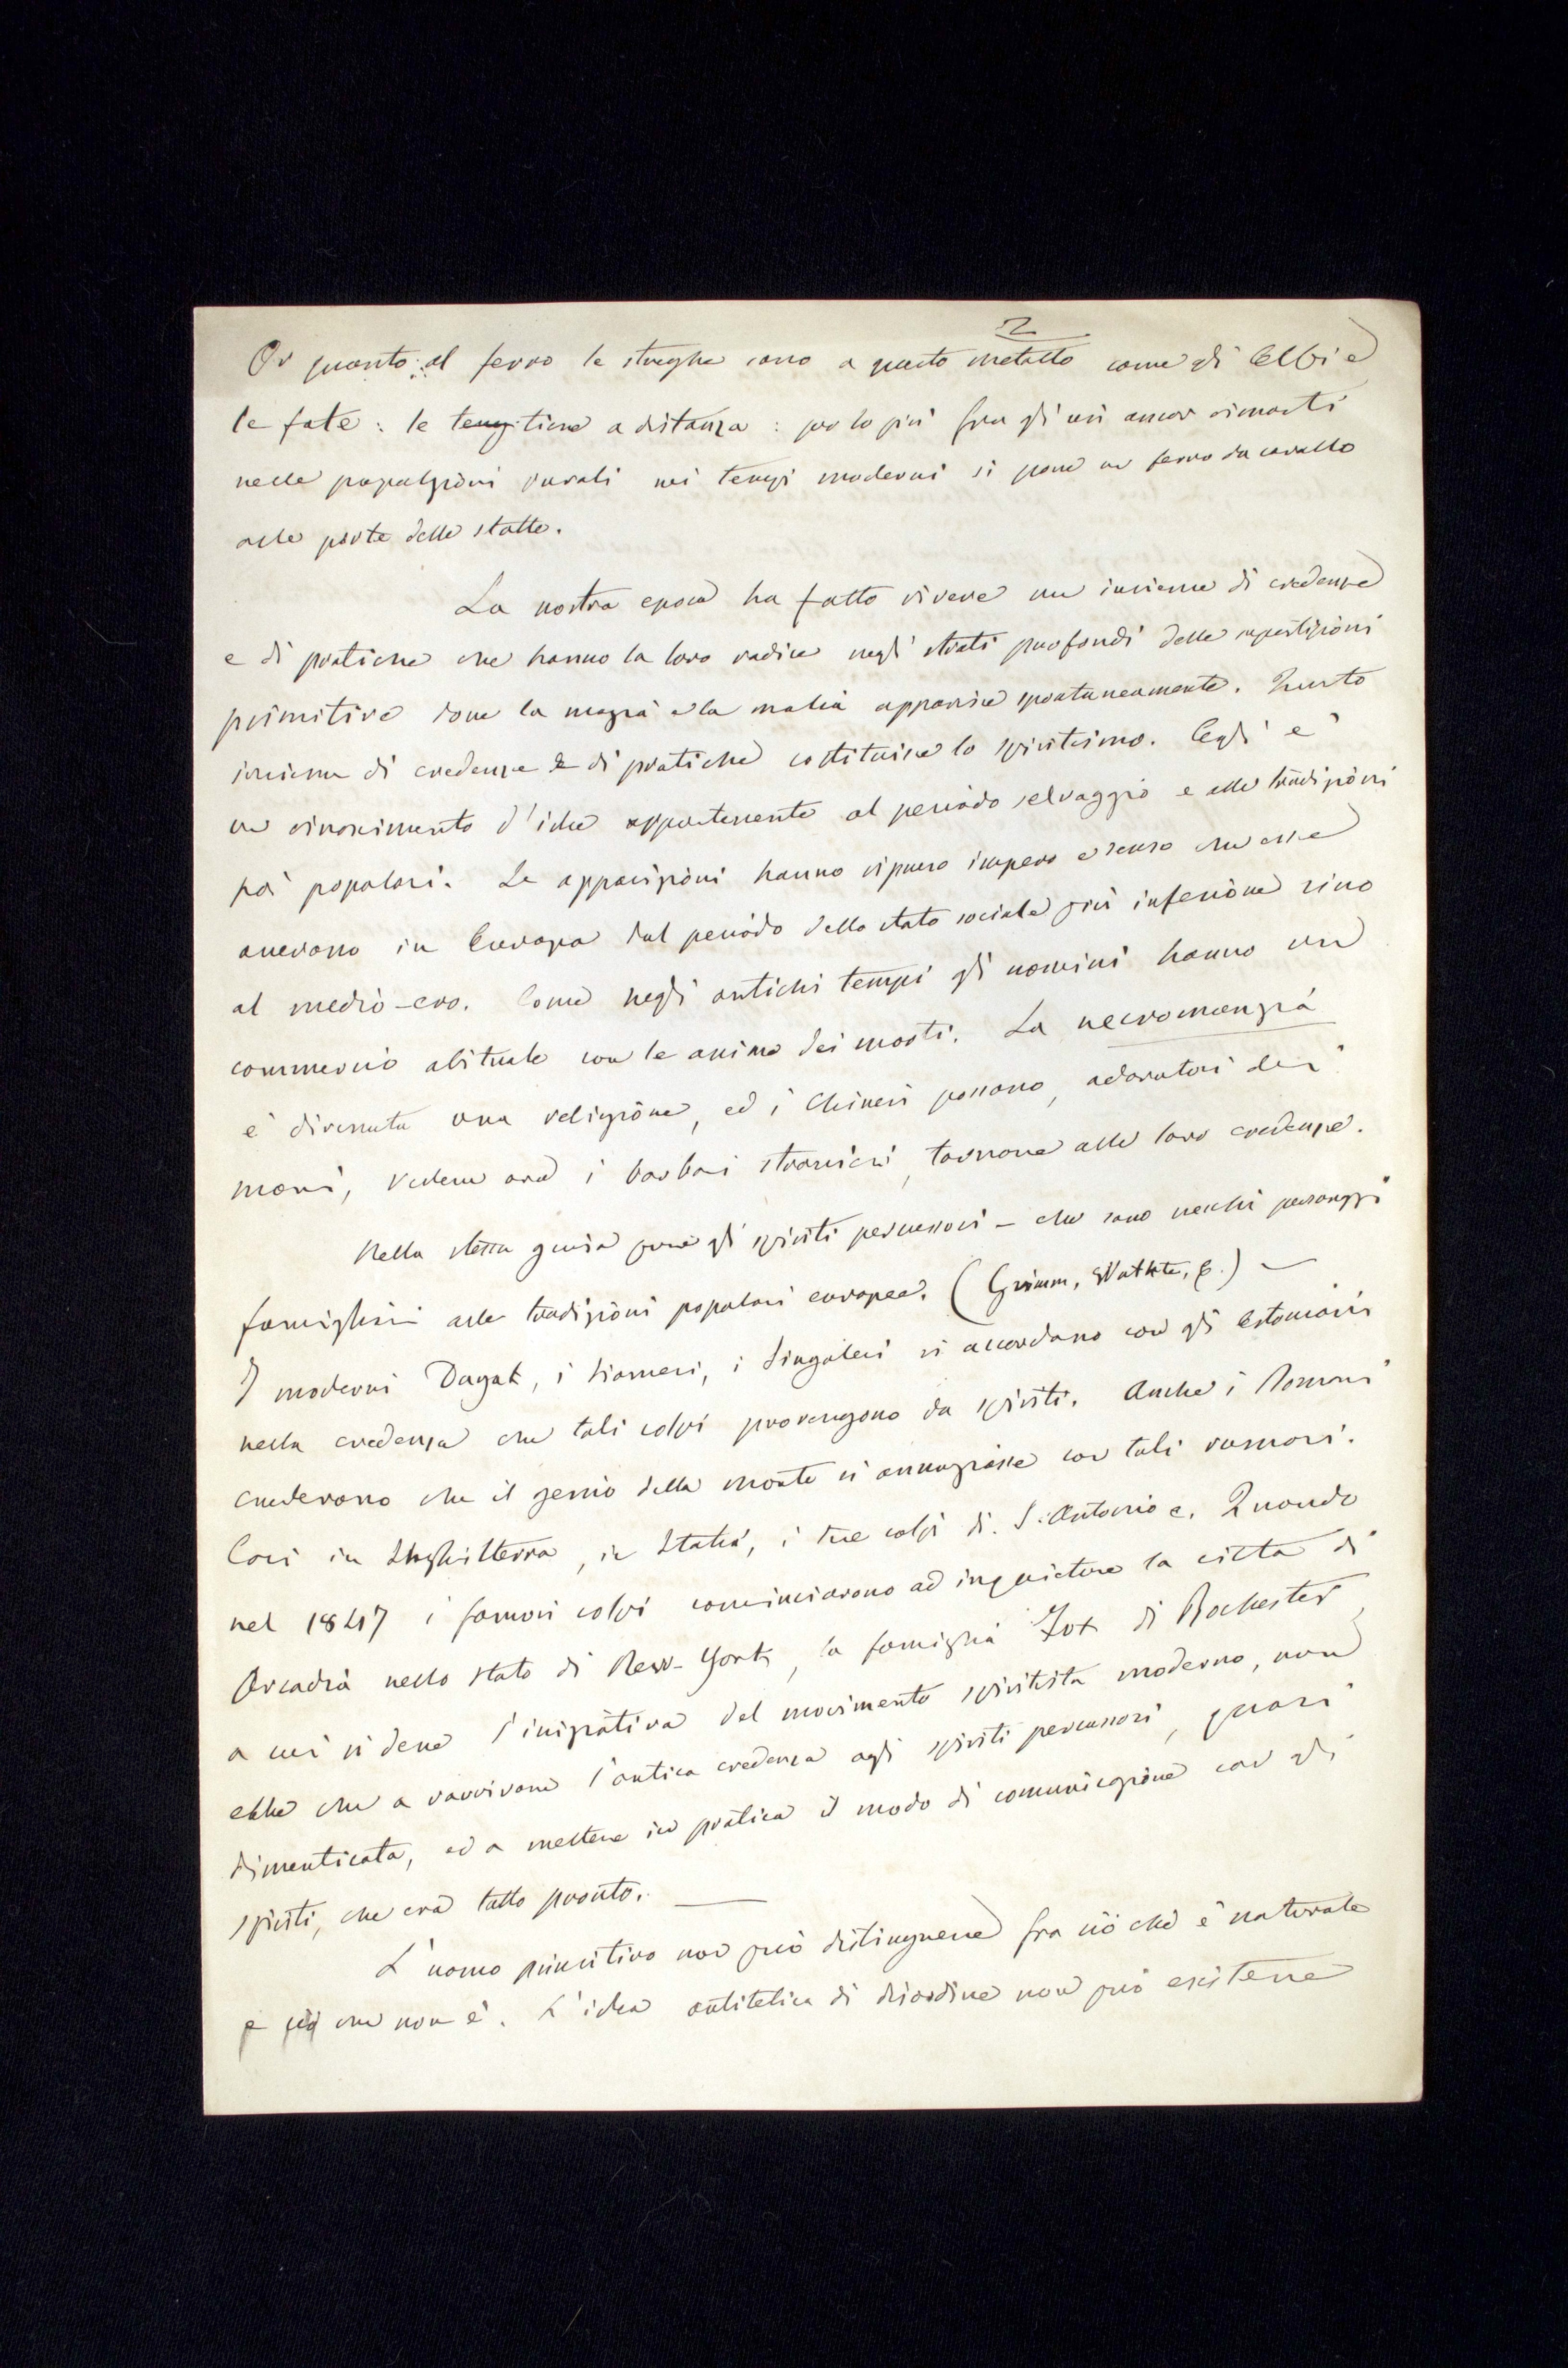 2
Or quanto al ferro le streghe sono a questo metallo come gli Elbi e
le fate: le tiene a distanza: per lo più fra gli usi ancor rimasti
nelle popolazioni rurali nei tempi moderni si pone un ferro da cavallo
alle porte delle stalle.
La nostra epoca ha fatto vivere un insieme di credenze
e di pratiche che hanno la loro radice negli strati profondi delle superstizioni
primitive dove la magia e la malia apparisce spontaneamente. Questo
insieme di credenze e di pratiche costituisce lo spiritismo. Egli è
un rinascimento d'idee appartenente al periodo selvaggio e alle tradizioni
poi popolari. Le apparizioni hanno ripreso impero e senso che esse
avevano in Europa dal periodo dello stato sociale più inferiore sino
al medio-evo. Come negli antichi tempi gli uomini hanno un
commercio abituale con le anime dei morti. La necromanzia
è divenuta una religione, ed i Chinesi possono, adoratori dei
mani, vedere ora i barbari stranieri, tornare alle loro credenze.
Nella stessa guisa pure gli spiriti percussori – che sono vecchi personaggi
famigliari alle tradizioni popolari europee. (Grimm, Wuttke, &.) –
I moderni Dayak, i Siamesi, i Singalesi si accordano con gli Estoniani
nella credenza che tali colpi provengono da spiriti. Anche i Romani
credevano che il genio della morte si annunziasse con tali rumori.
Così in Inghilterra, in Italia, i tre colpi di S. Antonio e. Quando
nel 1847 i famosi colpi cominciarono ad inquietare la città di
Arcadia nello stato di New-York, la famiglia Fox di Rochester,
a cui si deve l'iniziativa del movimento spiritista moderno, non
ebbe che a ravvivare l'antica credenza agli spiriti percussori, quasi
dimenticata, ed a mettere in pratica il modo di comunicazione con gli
spiriti, che era tutto pronto. —
L'uomo primitivo non può distinguere fra ciò che è naturale
e ciò che non è. L'idea antitetica di disordine non può esistere